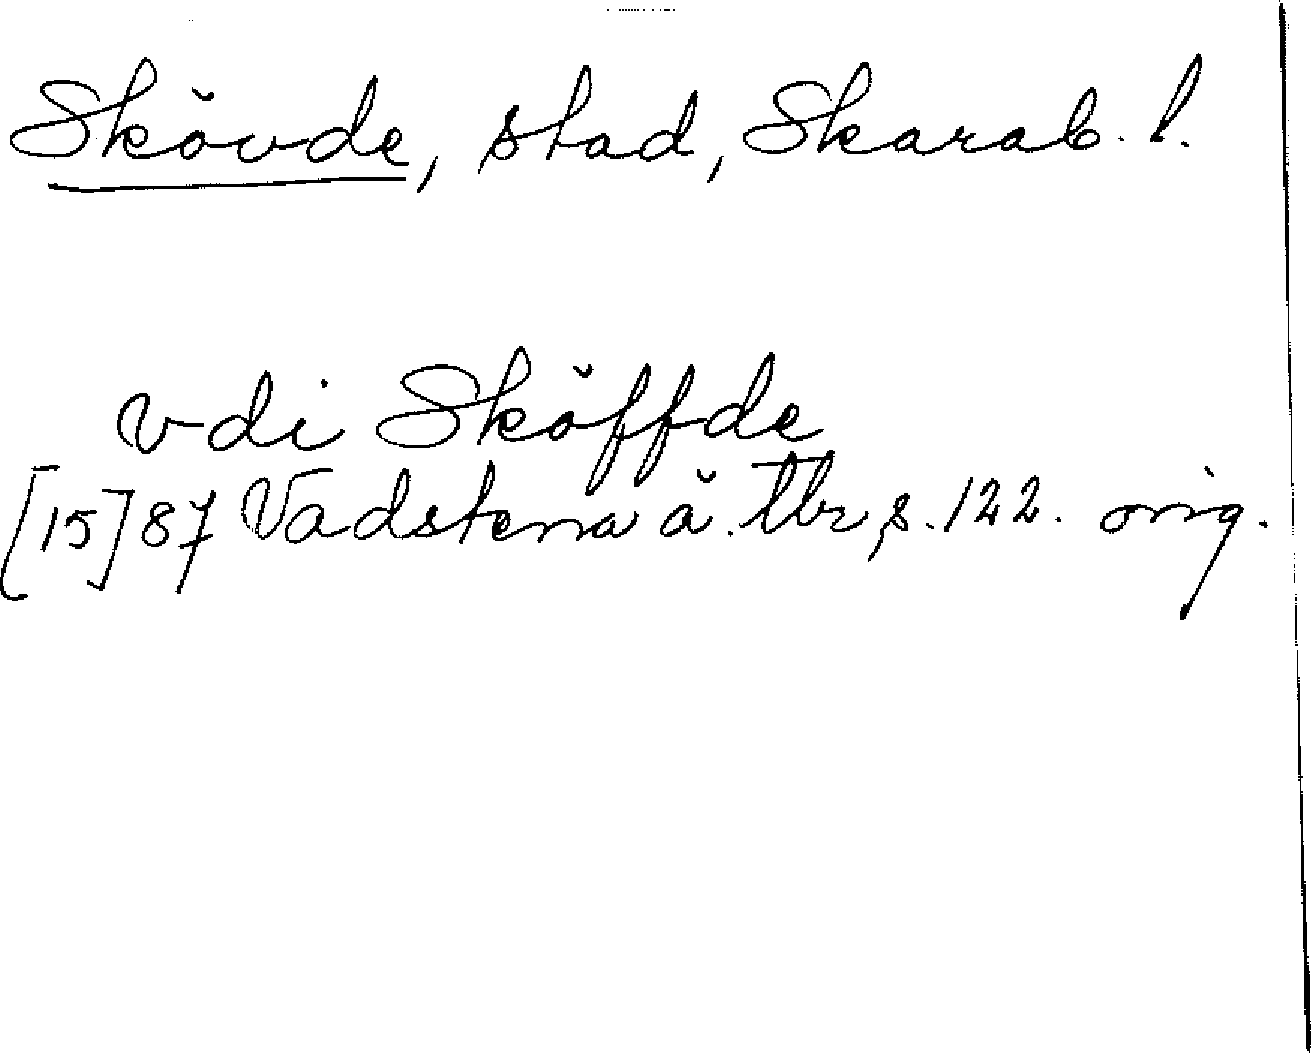 Skövde, stad, Skarab. l.
vdi Sköffde
[15]87 Vadstena ä. tbr, s. 122. orig.